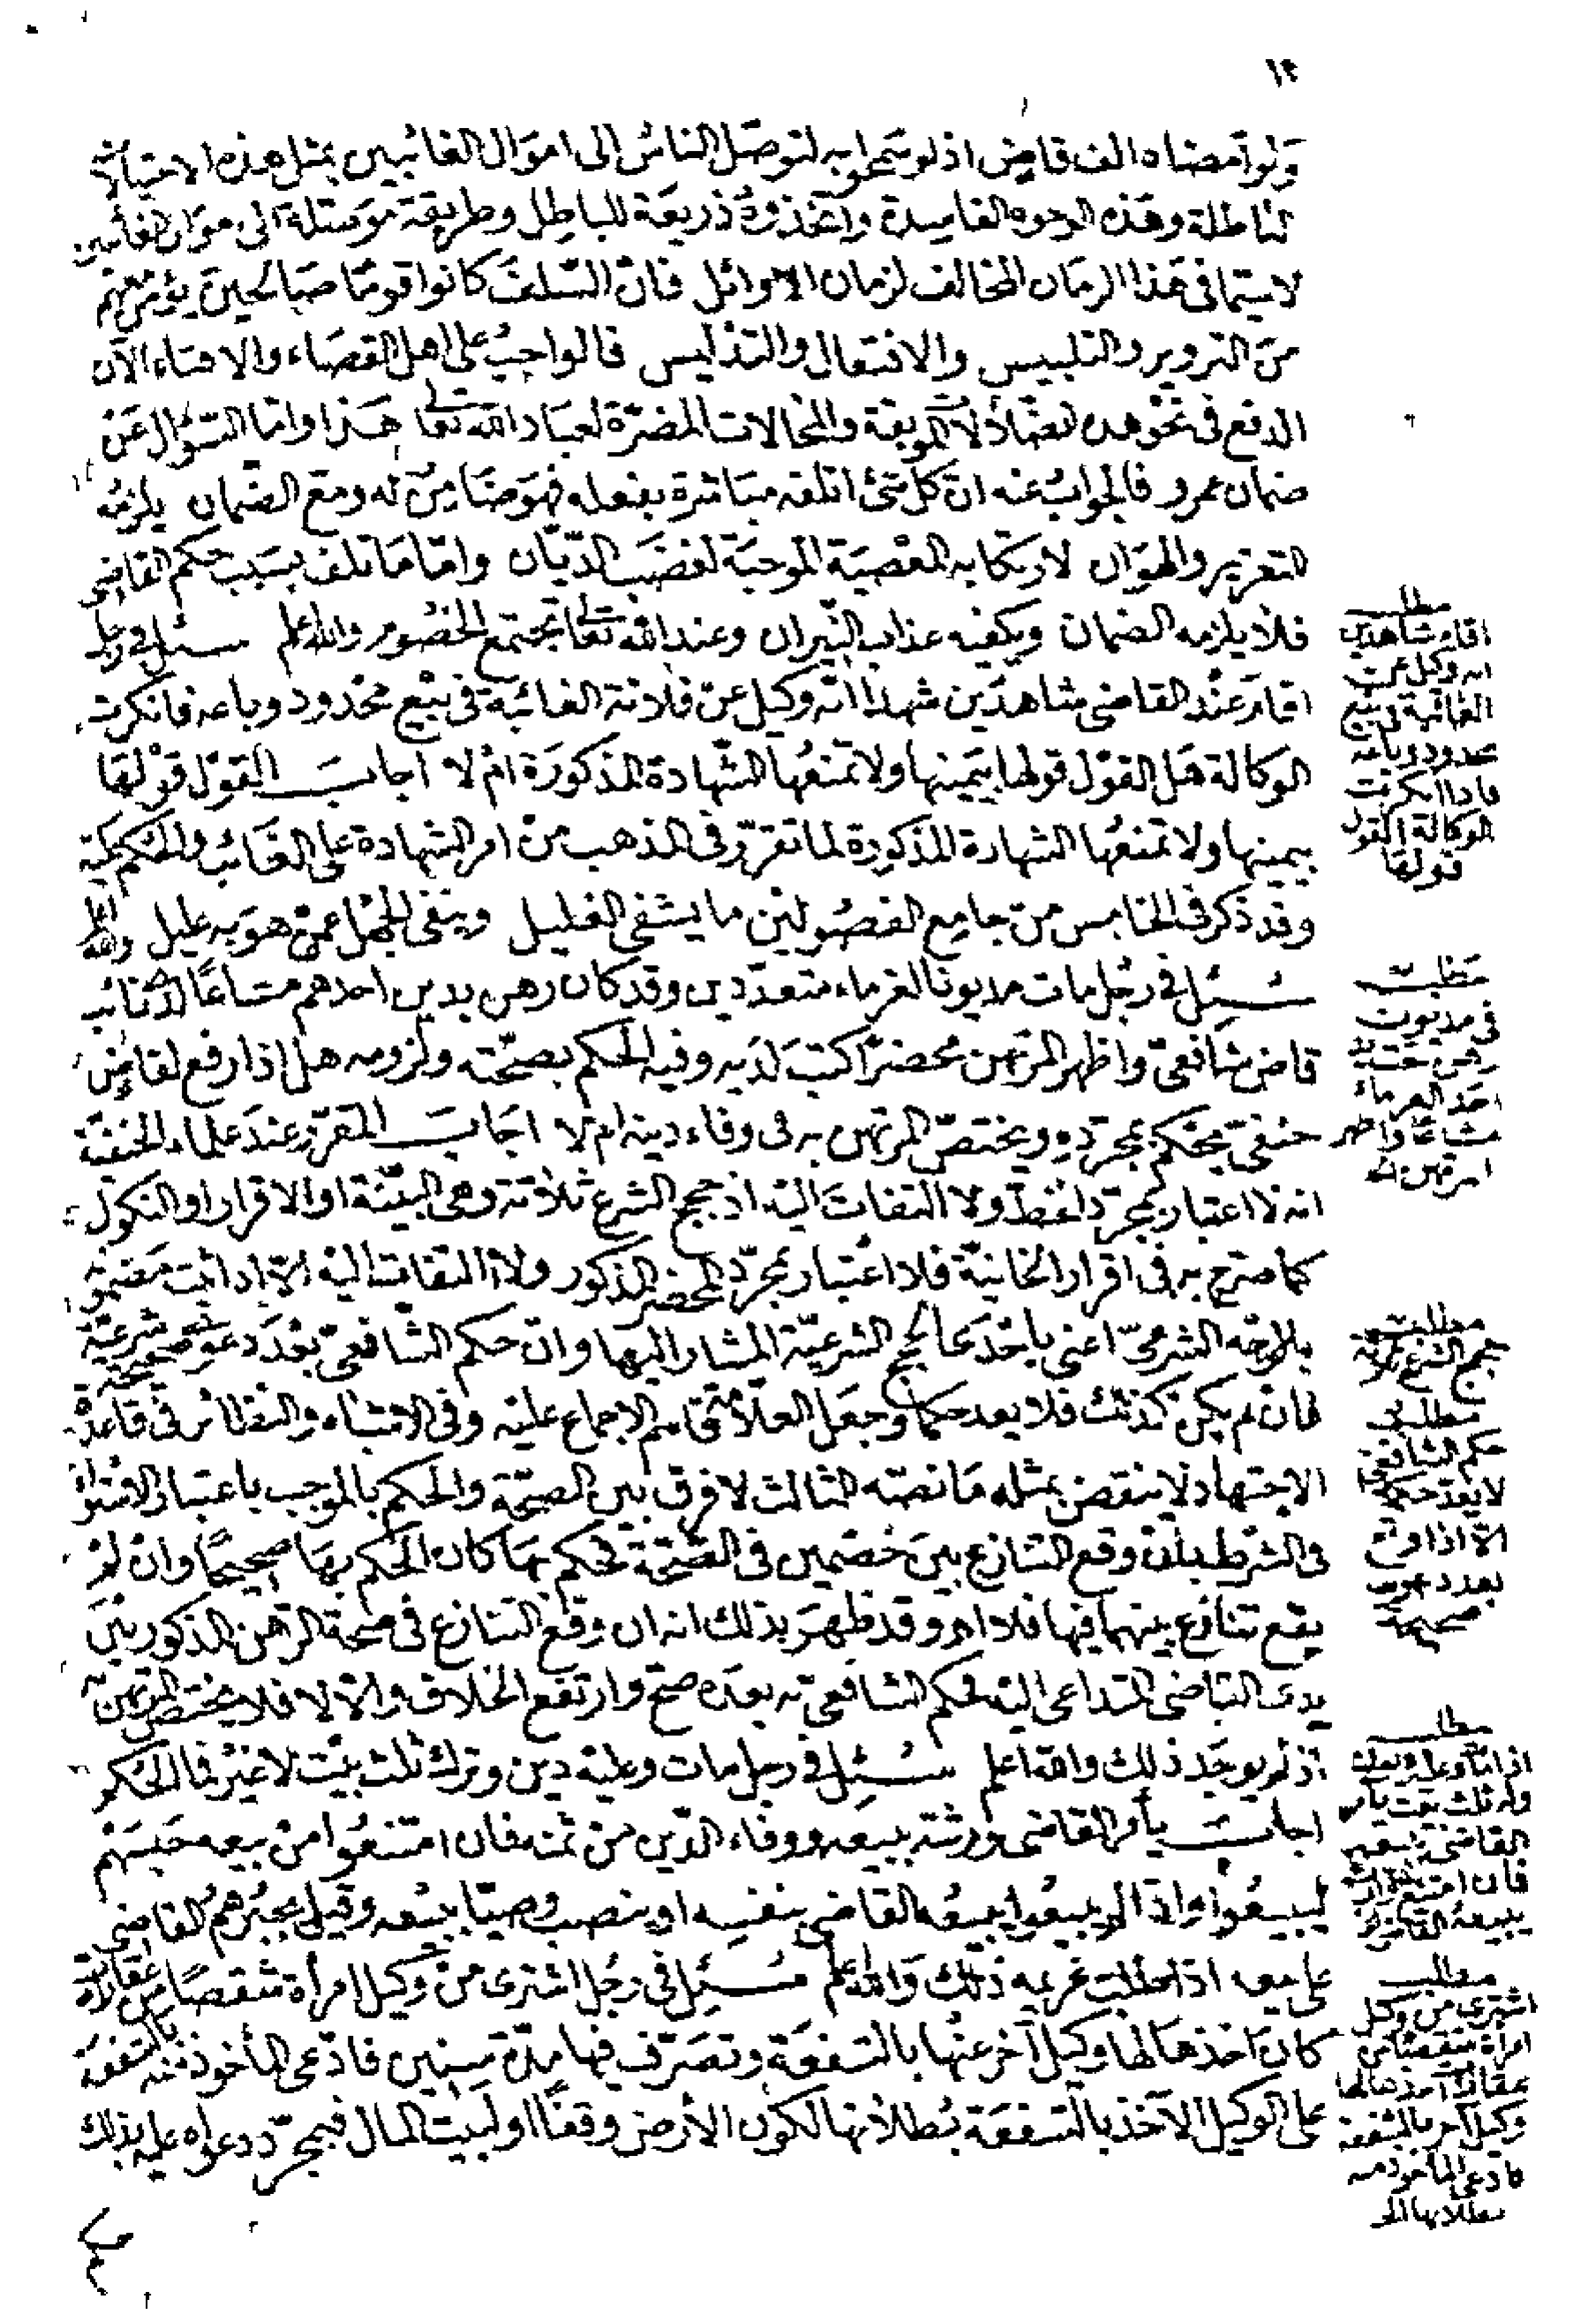 ١٢
ولو أمضاه الف قاض اذ لو سمحوا به لتوصل الناس الى اموال الغائبين بمثل هذه الاحتيالات
الباطلة وهذه الوجوه الفاسدة واتخذوه ذريعة للباطل وطريقة موصلة الى اموال الغائبين
لاسيما فى هذا الزمان المخالف لزمان الاوائل فان السلف كانوا قوما صالحين يؤمن منهم
من التزوير والتلبيس والافتعال والتدليس فالواجب على اهل القضاء والافتاء الآن
الدفع فى نحو هذه الموبقة والمحالات المضرة لعباد الله تعالى هذا واما السؤال عن
ضمان عمرو فالجواب عنه ان كل شئ اتلفه مباشرة بفعله فهو ضامن له ومع الضمان يلزمه
التعزير والهوان لارتكابه المعصية الموجبة لغضب الديان واما ما تلف بسبب حكم القاضى
فلا يلزمه الضمان ويكفيه عذاب النيران وعند الله تعالى تجتمع الخصوم والله اعلم سئل فى رجل
اقام عند القاضى شاهدين شهدا انه وكيل عن فلانة الغائبة فى بيع محدود وباعه فانكرت
الوكالة هل القول قولها بيمينها ولا تمنعها الشهادة المذكورة ام لا اجاب القول قولها
بيمينها ولا تمنعها الشهادة المذكورة لما تقرر فى المذهب من امر الشهادة على الغائب والحكم عليه
وقد ذكر فى الخامس من جامع الفصولين ما يشفى الغليل وينفى الجهل عمن هو به عليل والله اعلم
سئل فى رجل مات مديونا لغرماء متعددين وقد كان رهن بدين احدهم مشاعا لدى نائب
قاض شافعى واظهر المرتهن محضرا كتب لديه وفيه الحكم بصحته ولزومه هل اذا رفع لقاض
حنفى يحكم بمجرده ويختص المرتهن به فى وفاء دينه ام لا اجاب المقرر عند علماء الحنفية
انه لا اعتبار بمجرد الخط ولا التفات اليه اذ حجج الشرع ثلاثة وهى البينة او الاقرار او النكول
كما صرح به فى اقرار الخانية فلا اعتبار بمجرد المحضر المذكور ولا التفات اليه الا اذا ثبت مضمونه
بالوجه الشرعى اعنى باحدى الحجج الشرعية المشار اليها وان حكم الشافعى بعد دعوى صحيحة شرعية
فان لم يكن كذلك فلا يعد حكما وجعل العلامة قاسم الاجماع عليه وفى الاشباه والنظائر فى قاعدة
الاجتهاد لا ينقض بمثله ما نصه الثالث لا فرق بين الصحة والحكم بالموجب باعتبار الاستواء
فى الشرط بان وقع التنازع بين خصمين فى الصحة فحكم بها كان الحكم بها صحيحا وان لم
يقع تنازع بينهما فيها فلا اهـ وقد ظهر بذلك انه ان وقع التنازع فى صحة الرهن المذكور بين
يدى القاضى المتداعى اليه فحكم الشافعى به بعده صح وارتفع الخلاف والا لا فلا يختص المرتهن به
اذ لم يوجد ذلك والله اعلم سئل فى رجل مات وعليه دين وترك ثلث بيت لا غير فما الحكم
اجاب يأمر القاضى ورثته ببيعه ووفاء الدين من ثمنه فان امتنعوا من بيعه حبسهم
ليبيعوا واذا لم يبيعوا يبيعه القاضى بنفسه او ينصب وصيا يبيعه وقيل يجبرهم القاضى
على بيعه اذا طلب غريمه ذلك والله اعلم سئل فى رجل اشترى من وكيل امرأة شقصا من عقارات
كان اخذها لها وكيل آخر عنها بالشفعة وتصرف فيها مدة سنين فادعى المأخوذ منه بالشفعة
على الوكيل الآخذ بالشفعة بطلانها لكون الأرض وقفا او لبيت المال فبمجرد دعواه عليه بذلك
مطلب
اقام شاهدين
انه وكيل عن
الغائبة فى بيع
محدود وباعه
فاذا انكرت
الوكالة القول
قولها
مطلب
فى مديون
رهن حصة
احد الغرماء
مشاعا واظهر
المرتهن
مطلب
حجج الشرع ثلاثة
مطلب
حكم الشافعى
لا يعد حكما
الا اذا وقع
بعد دعوى
صحيحة
مطلب
اذا مات وعليه دين
وله ثلث بيت يأمر
القاضى ببيعه
فان امتنع
يبيعه القاضى
مطلب
اشترى من وكيل
امرأة شقصا من
عقارات اخذها لها
وكيل آخر بالشفعة
فادعى المأخوذ منه
بطلانها الخ